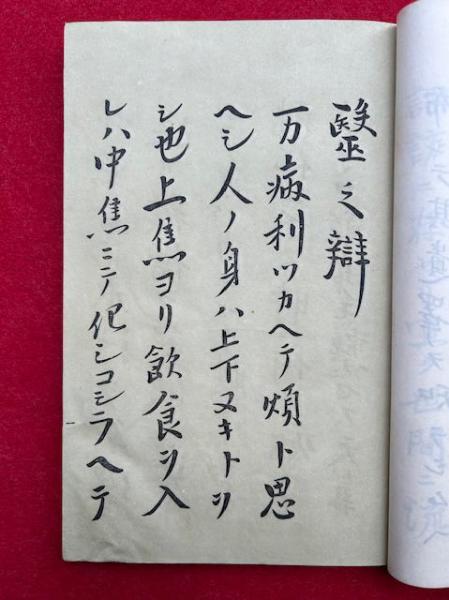 毉之辯
万病利ツカヘテ煩ト思
ヘシ人ノ身ハ上下ヌキトヲ
シ也上焦ヨリ飲食ヲ入
レハ中焦ニテ化シコシラヘテ